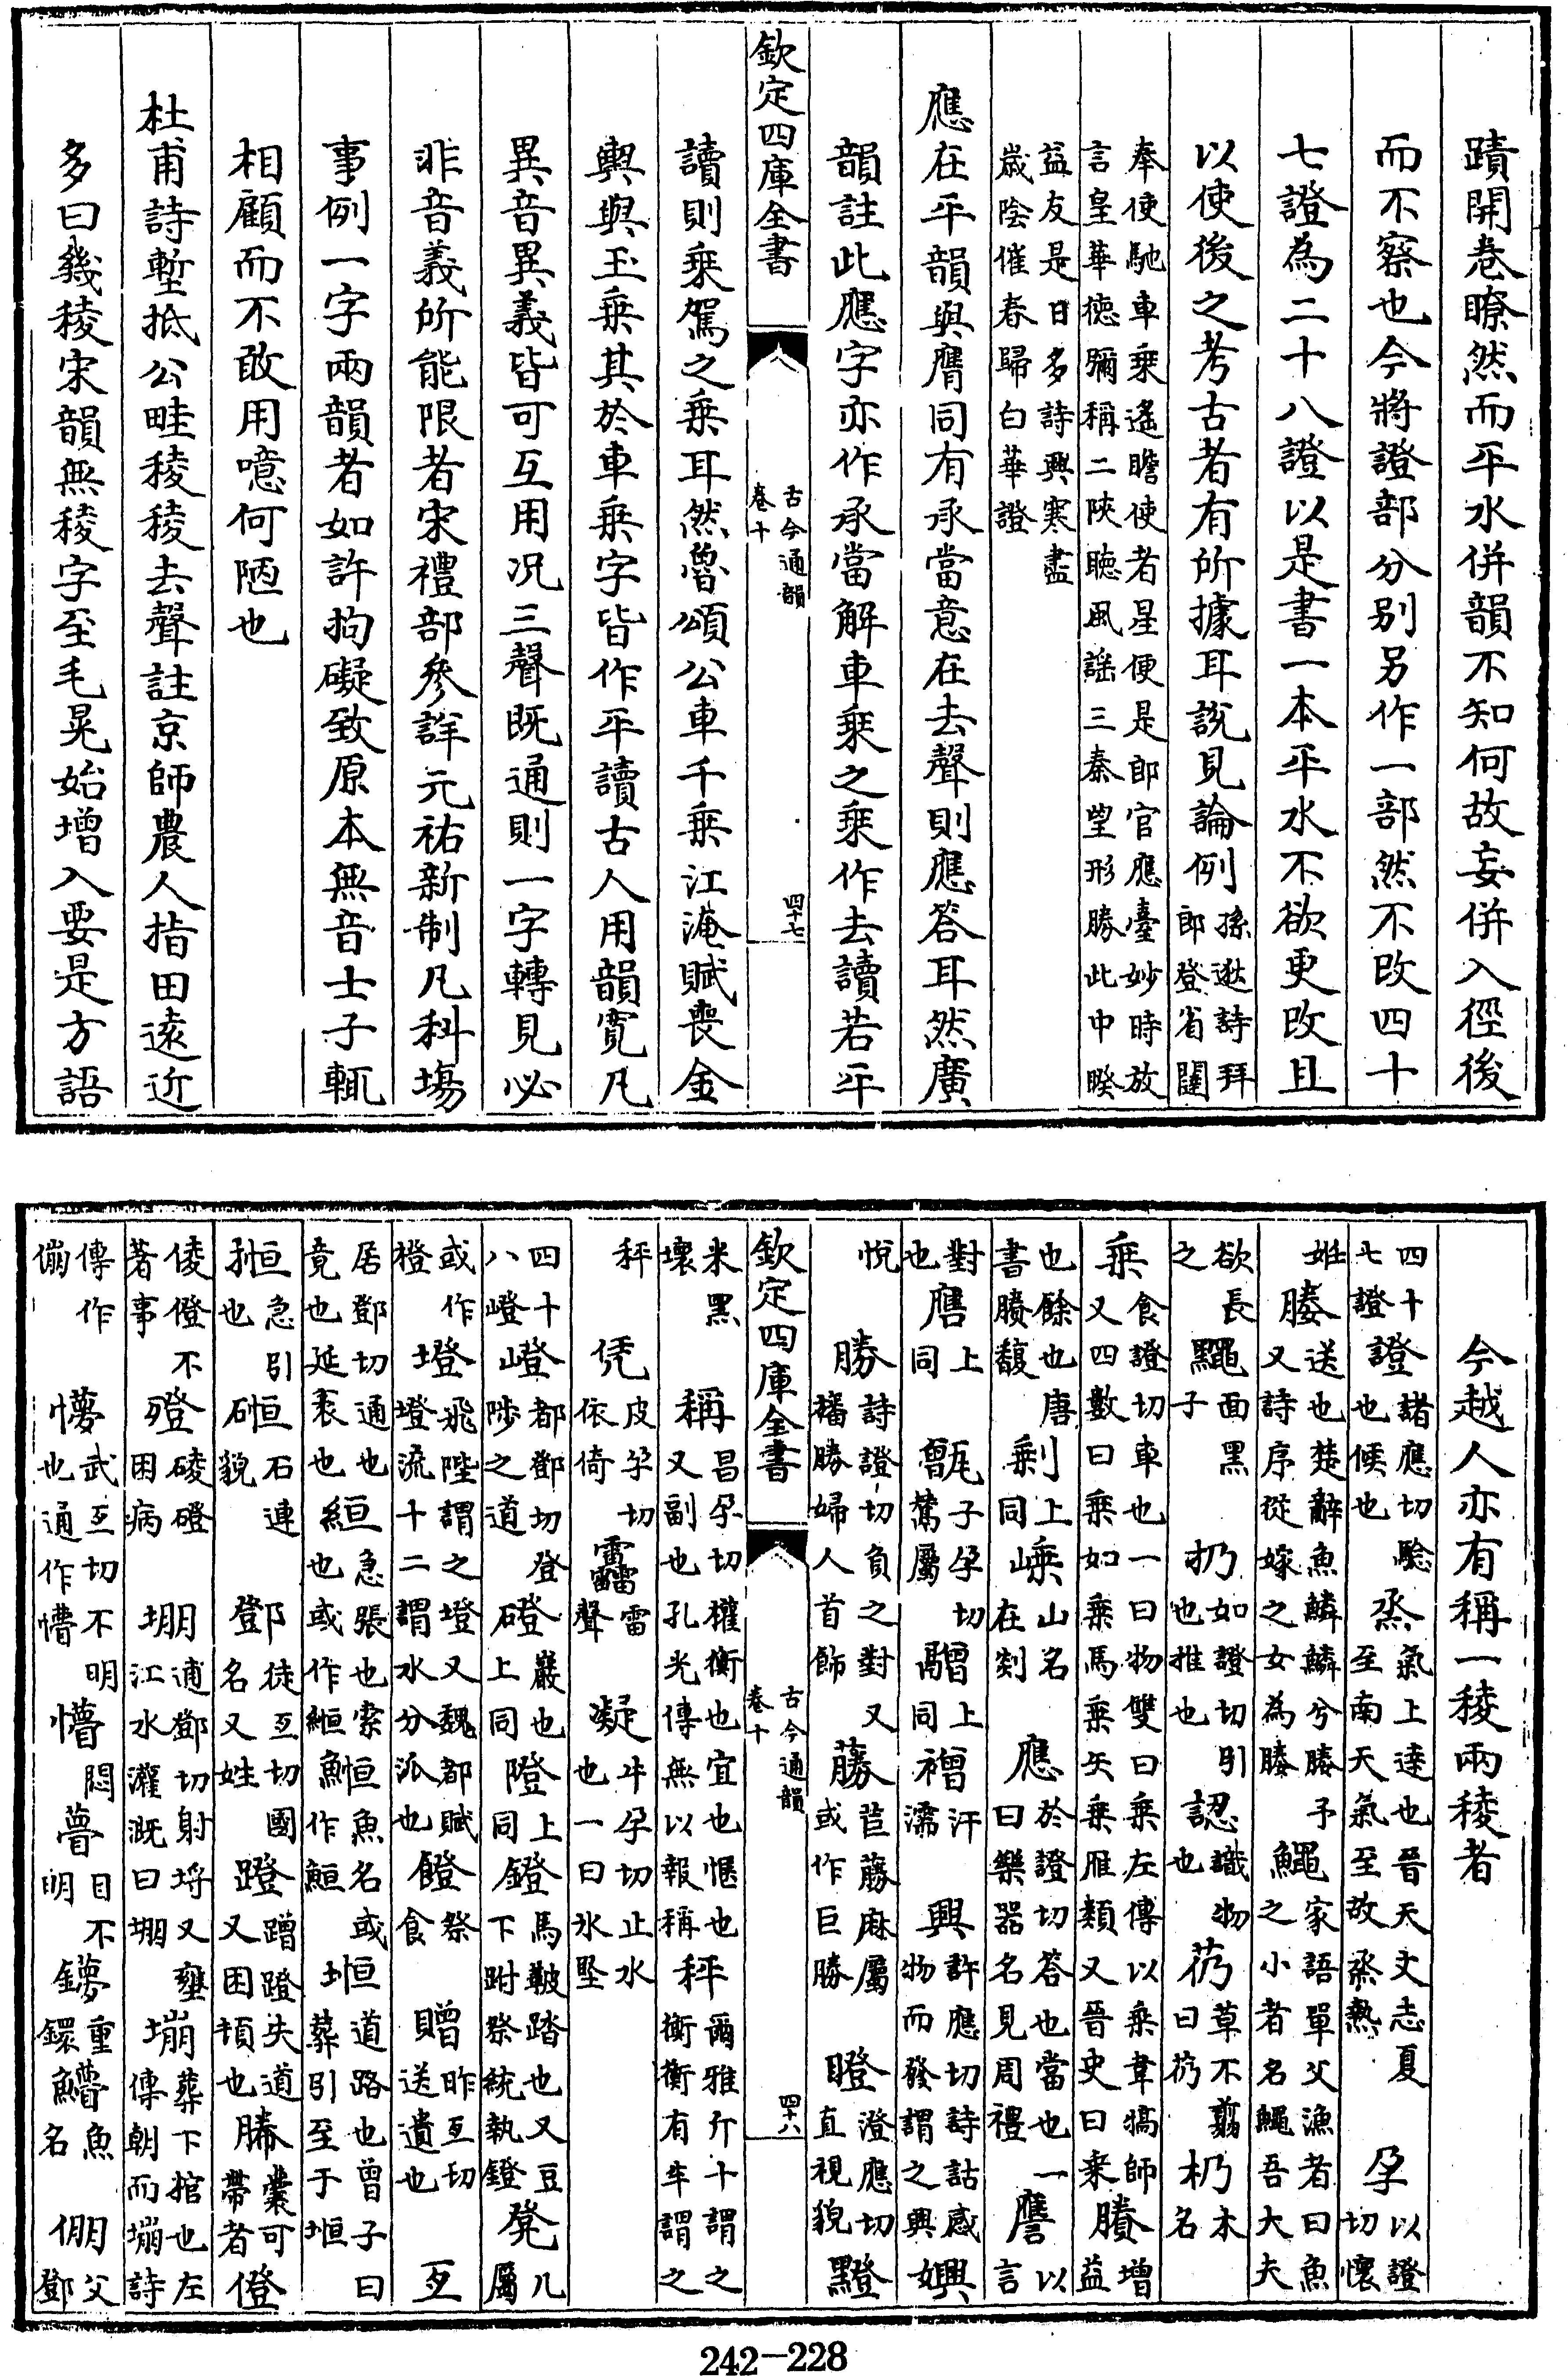 蹟開卷瞭然而平水併韻不知何故妄併入徑後
而不察也今將證部分别另作一部然不改四十
七證為二十八證以是書一本平水不欲更改且
以使後之考古者有所據耳說見論例孫逖詩拜郎登省闥
奉使馳車乗遙瞻使者星便是郎官應臺妙時放
言皇華德彌稱二陜聽風謡三秦望形勝此中睽
益友是日多詩興寒盡
歲陰催春歸白華證
應在平韻與膺同有承當意在去聲則應答耳然廣
韻註此應字亦作承當解車乘之乗作去讀若平
欽定四庫全書 古今通韻 卷十 四十七
讀則乗駕之乗耳然魯頌公車千乗江淹賦喪金
輿與玉乗其於車乗字皆作平讀古人用韻寛凡
異音異義皆可互用况三聲既通則一字轉見必
非音義所能限者宋禮部參詳元祐新制凡科塲
事例一字兩韻者如許拘礙致原本無音士子輒
相顧而不敢用噫何陋也
杜甫詩塹抵公畦稜稜去聲註京師農人指田遠近
多曰幾稜宋韻無稜字至毛晃始增入要是方語
今越人亦有稱一稜兩稜者
四十七證 證諸應切驗也候也 烝氣上達也晉天文志夏至南天氣至故烝熱 孕以證切懷
姙 媵送也楚辭魚鱗鱗兮媵予又詩序從嫁之女為媵 鱦家語單父漁者曰魚之小者名鱦吾大夫
欲長之 䵴面黑子 扔如證切引也推也 認識物也 芿草不翦曰芿 杒木名
乗食證切車也一曰物雙曰乗左傳以乗韋犒師又四數曰乗如乗馬乗矢乗雁類又晉史曰乗 賸增益
也餘也唐書賸馥 剩上同 嵊山名在剡 應於證切答也當也一曰樂器名見周禮 譍以言
對也 噟上同 甑子孕切鬵屬 䰝上同 䙢汗濡 興許應切詩詁感物而發謂之興 嬹
悅 勝詩證切負之對又䙢勝婦人首飾 蕂苣蕂麻屬或作巨勝 瞪澄應切直視貌 䵴
欽定四庫全書 古今通韻 卷十 四十八
米黑壞 稱昌孕切權衡也宜也愜也又副也孔光傳無以報稱 秤爾雅斤十謂之衡衡有半謂之
秤 凭皮孕切依倚 䨻雷聲 凝牛孕切止水也一曰氷堅
四十八嶝 嶝都鄧切登陟之道 磴巖也上同 隥上同 鐙馬鞁踏也又豆下跗祭統執鐙 凳几屬
或作橙 墱飛陛謂之墱又魏都賦墱流十二謂水分派也 䭲祭食 贈昨亙切送遺也 亙
居鄧切通也竟也延袤也 絙急張也索也或作緪 䱴魚名或作䱭 堩道路也曾子曰葬引至于堩
恒急引也 硱石連貌 鄧徒亙切國名又姓 蹬蹭蹬失道又困頓也 幐囊可帶者 僜
倰僜不著事 殑殑磴困病 堋逋鄧切射埓又壅江水灌溉曰堋 塴葬下棺也左傳朝而塴詩
傳作傰 懜武亙切不明也通作懵 懵悶 瞢目不明 鱦魚名 倗父鄧
242-228